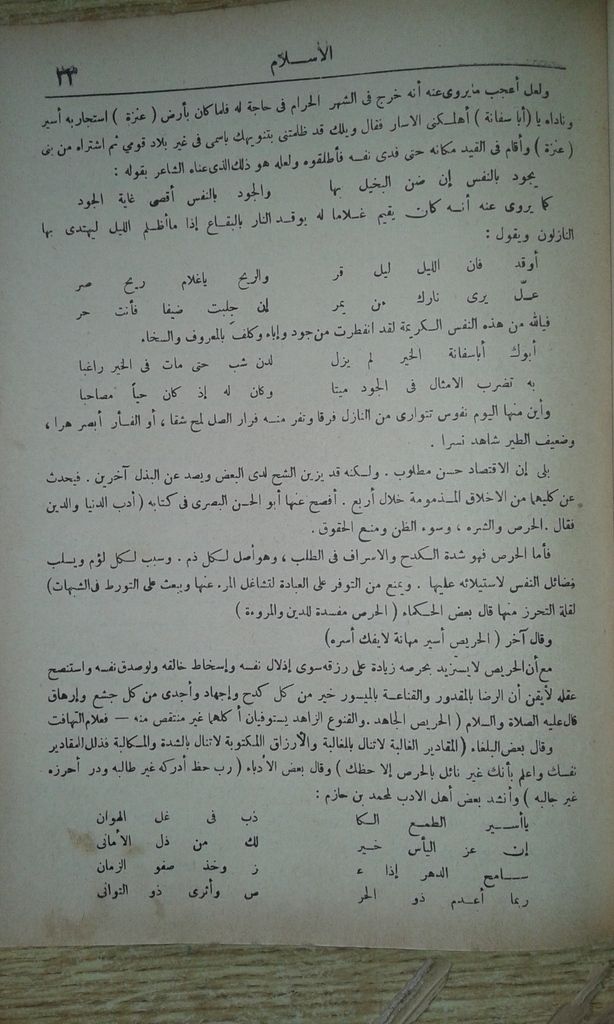 ٢٣
الأســـلام
ولعل أعجب مايروى عنه أنه خرج فى الشهر الحرام فى حاجة له فلما كان بأرض ( عنزة ) استجار به أسير
وناداه يا ( أبا سفانة ) أهلكنى الاسار فقال ويلك قد ظلمتنى بتنويهك باسمى فى غير بلاد قومي ثم اشتراه من بنى
( عنزة ) وأقام فى القيد مكانه حتى فدى نفسه فأطلقوه ولعله هو ذلك الذى عناه الشاعر بقوله :
يجود بالنفس إن ضن البخيل بها والجود بالنفس أقصى غاية الجود
كما يروى عنه أنه كان يقيم غلاما له يوقد النار بالبقاع إذا ما أظلم الليل ليهتدى بها
النازلون ويقول :
أوقد فان الليل ليل قر والريح ياغلام ريح صر
علّ يرى نارك من يمر إن جلبت ضيفا فأنت حر
فيالله من هذه النفس الكريمة لقد انفطرت من جود وإباء وكلف بالمعروف والسخاء
أبوك أباسفانة الخير لم يزل لدن شب حتى مات فى الخير راغبا
به تضرب الامثال فى الجود ميتا وكان له إذ كان حياً مصاحبا
وأين منها اليوم نفوس تتوارى من النازل فرقا وتفر منه فرار الصل لمح شقا ، أو الفأر أبصر هرا ،
وضعيف الطير شاهد نسرا .
بلى إن الاقتصاد حسن مطلوب . ولكنه قد يزين الشح لدى البعض ويصد عن البذل آخرين . فيحدث
عن كليهما من الاخلاق المذمومة خلال أربع . أفصح عنها أبو الحسن البصرى فى كتابه ( أدب الدنيا والدين
فقال . الحرص والشره ، وسوء الظن ومنع الحقوق .
فأما الحرص فهو شدة الكدح والاسراف فى الطلب ، وهو أصل لكل ذم . وسبب لكل لؤم ويسلب
فضائل النفس لاستيلائه عليها . ويمنع من التوفر على العبادة لتشاغل المرء عنها ويبعث على التورط فى الشبهات)
لقلة التحرز منها قال بعض الحكماء ( الحرص مفسدة للدين والمروءة )
وقال آخر ( الحريص أسير مهانة لايفك أسره)
مع أن الحريص لايستزيد بحرصه زيادة على رزقه سوى إذلال نفسه وإسخاط خالقه ولو صدق نفسه واستنصح
عقله لأيقن أن الرضا بالمقدور والقناعة بالميسور خير من كل كدح وإجهاد وأجدى من كل جشع وإرهاق
قال عليه الصلاة والسلام ( الحريص الجاهد . والقنوع الزاهد يستوفيان أكلهما غير منتقص منه — فعلام التهافت
وقال بعض البلغاء ( المقادير الغالبة لاتنال بالمغالبة والأرزاق المكتوبة لاتنال بالشدة والمكالبة فذلل للمقادير
نفسك واعلم بأنك غير نائل بالحرص إلا حظك ) وقال بعض الأدباء ( رب حظ أدركه غير طالبه ودر أحرزه
غير جالبه ) وأنشد بعض أهل الادب لمحمد بن حازم :
ياأسير الطمع الكا ذب فى غل الهوان
إن عز اليأس خير لك من ذل الأمانى
سامح الدهر إذا ء ز وخذ صفو الزمان
ربما أعدم ذو الحر ص وأثرى ذو التوانى